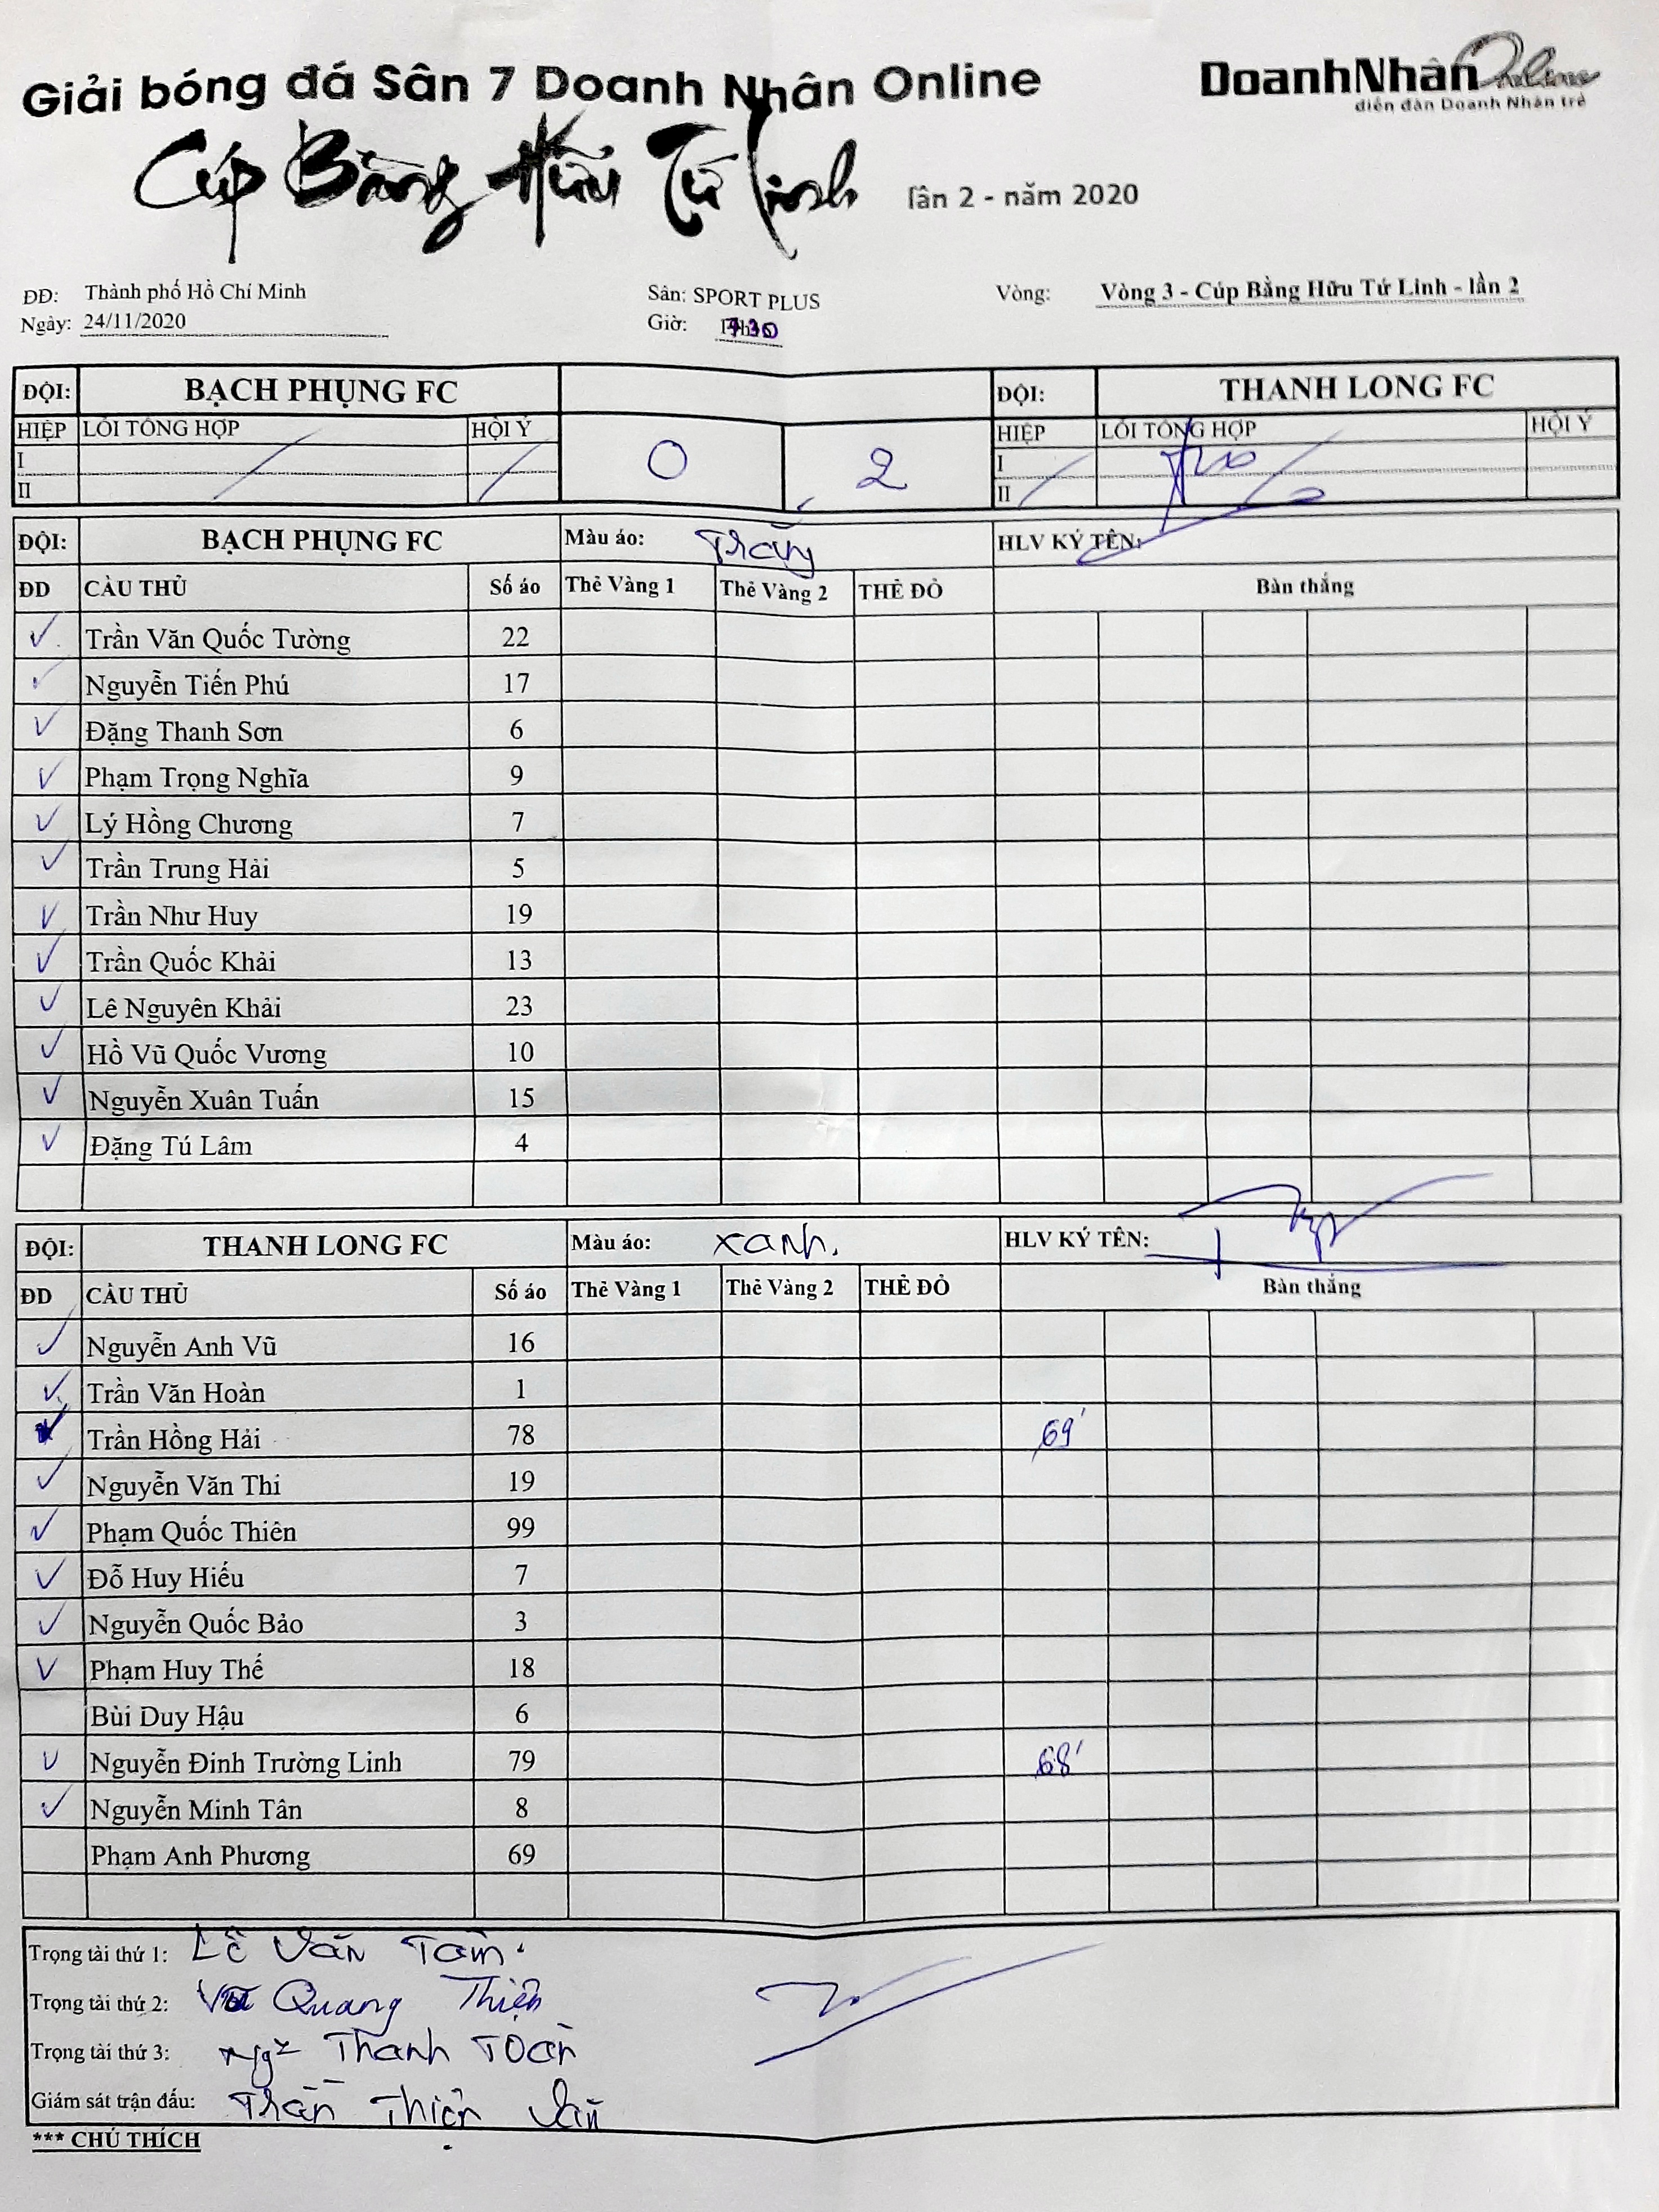 Giải bóng đá Sân 7 Doanh Nhân Online
DoanhNhân Online
diễn đàn Doanh Nhân trẻ
Cúp Bằng Hữu Tứ Linh lần 2 - năm 2020
ĐĐ: Thành phố Hồ Chí Minh Sân: SPORT PLUS Vòng: Vòng 3 - Cúp Bằng Hữu Tứ Linh - lần 2
Ngày: 24/11/2020 Giờ:
ĐỘI: BẠCH PHỤNG FC ĐỘI: THANH LONG FC
HIỆP LỖI TỔNG HỢP HỘI Ý 0 2 HIỆP LỖI TỔNG HỢP HỘI Ý
I I
II II
ĐỘI: BẠCH PHỤNG FC Màu áo: Trắng HLV KÝ TÊN:
ĐD CẦU THỦ Số áo Thẻ Vàng 1 Thẻ Vàng 2 THẺ ĐỎ Bàn thắng
✓ Trần Văn Quốc Tường 22
✓ Nguyễn Tiến Phú 17
✓ Đặng Thanh Sơn 6
✓ Phạm Trọng Nghĩa 9
✓ Lý Hồng Chương 7
✓ Trần Trung Hải 5
✓ Trần Như Huy 19
✓ Trần Quốc Khải 13
✓ Lê Nguyên Khải 23
✓ Hồ Vũ Quốc Vương 10
✓ Nguyễn Xuân Tuấn 15
✓ Đặng Tú Lâm 4
ĐỘI: THANH LONG FC Màu áo: xanh. HLV KÝ TÊN:
ĐD CẦU THỦ Số áo Thẻ Vàng 1 Thẻ Vàng 2 THẺ ĐỎ Bàn thắng
✓ Nguyễn Anh Vũ 16
✓ Trần Văn Hoàn 1
✓ Trần Hồng Hải 78 69'
✓ Nguyễn Văn Thi 19
✓ Phạm Quốc Thiên 99
✓ Đỗ Huy Hiếu 7
✓ Nguyễn Quốc Bảo 3
✓ Phạm Huy Thế 18
Bùi Duy Hậu 6
✓ Nguyễn Đinh Trường Linh 79 68'
✓ Nguyễn Minh Tân 8
Phạm Anh Phương 69
Trọng tài thứ 1: Lê Văn Tâm.
Trọng tài thứ 2: Võ Quang Thiện
Trọng tài thứ 3: Ng~ Thanh Toàn
Giám sát trận đấu: Trần Thiện Văn
*** CHÚ THÍCH